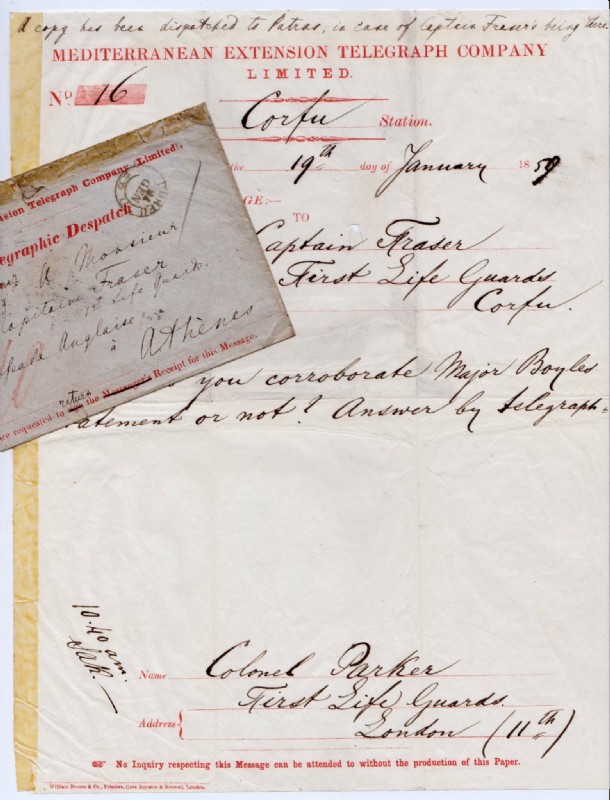 A copy has been dispatched to Patras, in case of Captain Fraser's being there.
MEDITERRANEAN EXTENSION TELEGRAPH COMPANY
LIMITED.
No 16
Corfu Station.
the 19th day of January 1859
GE:—
TO
Captain Fraser
First Life Guards
Corfu.
you corroborate Major Boyles
atement or not? Answer by telegraph.
10.40 am.
Name Colonel Parker
First Life Guards.
Address London (11th)
No Inquiry respecting this Message can be attended to without the production of this Paper.
William Brown & Co., Printers, (late Royston & Brown), London.
nsion Telegraph Company (Limited).
egraphic Despatch
A Monsieur
Capitaine Fraser
1st Life Guards.
Anglaise
à
Athènes
return
are requested to the Messenger's Receipt for this Message.